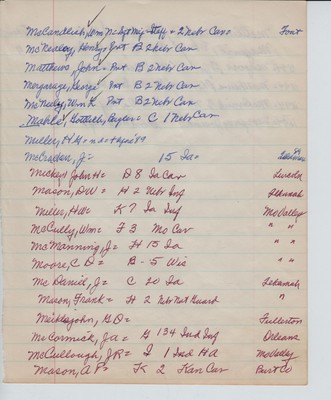 McCandlish, Wm N = Sgt Maj Staff = 2 Nebr Cav = Font
McNealey, Henry = Pvt B 2 Nebr Cav
Matthews, John = Pvt B 2 Nebr Cav
George Pvt B 2 Nebr Cav
McNeely, Wm R Pvt B 2 Nebr Cav
Mahle, Gottlieb, Bugler = C 1 Nebr Cav
Miller, H G = n d = Apr 1 '89
J = 15 Iao
Mickey, John H = D 8 Ia Cav Lincoln
Mason, DW = H 2 Nebr Inf Tekamah
Miller, HW = K 7 Ia Inf Mo Valley
McCully, Wm = F 3 Mo Cav " "
McManning, J = H 15 Ia " "
Moore, C D = B - 5 Wis " "
McDaniel, J = C 20 Ia Tekamah
Mason, Frank = H 2 Nebr Nat Guard "
Meiklejohn, G D = Fullerton
McCormick, J A = G 134 Ind Inf Orleans
McCullough, J R = I 1 Ind H A Mo Valley
Mason, A P = K 2 Kan Cav Burt Co